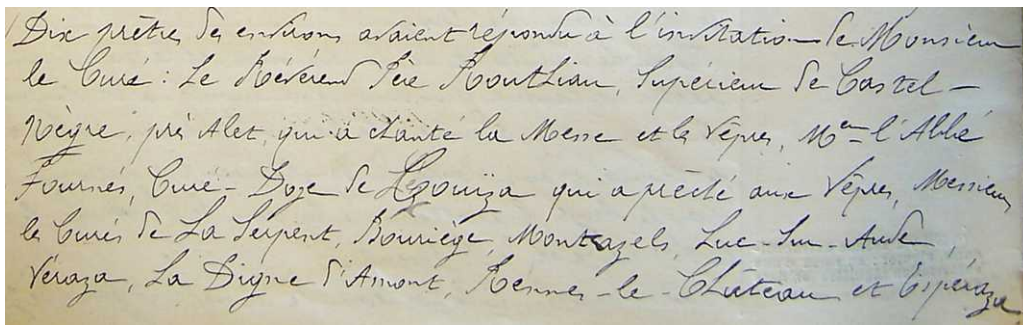 Dix prêtres des environs avaient répondu à l'invitation de Monsieur
le Curé : Le Révérend Père Routhiau, Supérieur de Castel-
Nègre, près Alet, qui a chanté la Messe et les Vêpres, Mr l'Abbé
Fournés, Curé-Doye de Lézouïza qui a prêché aux Vêpres, Messieurs
les Curés de La Serpent, Bouriège, Montazels, Luc-Sur-Aude,
Véraza, La Digne d'Amont, Rennes-le-Château et Espéraza